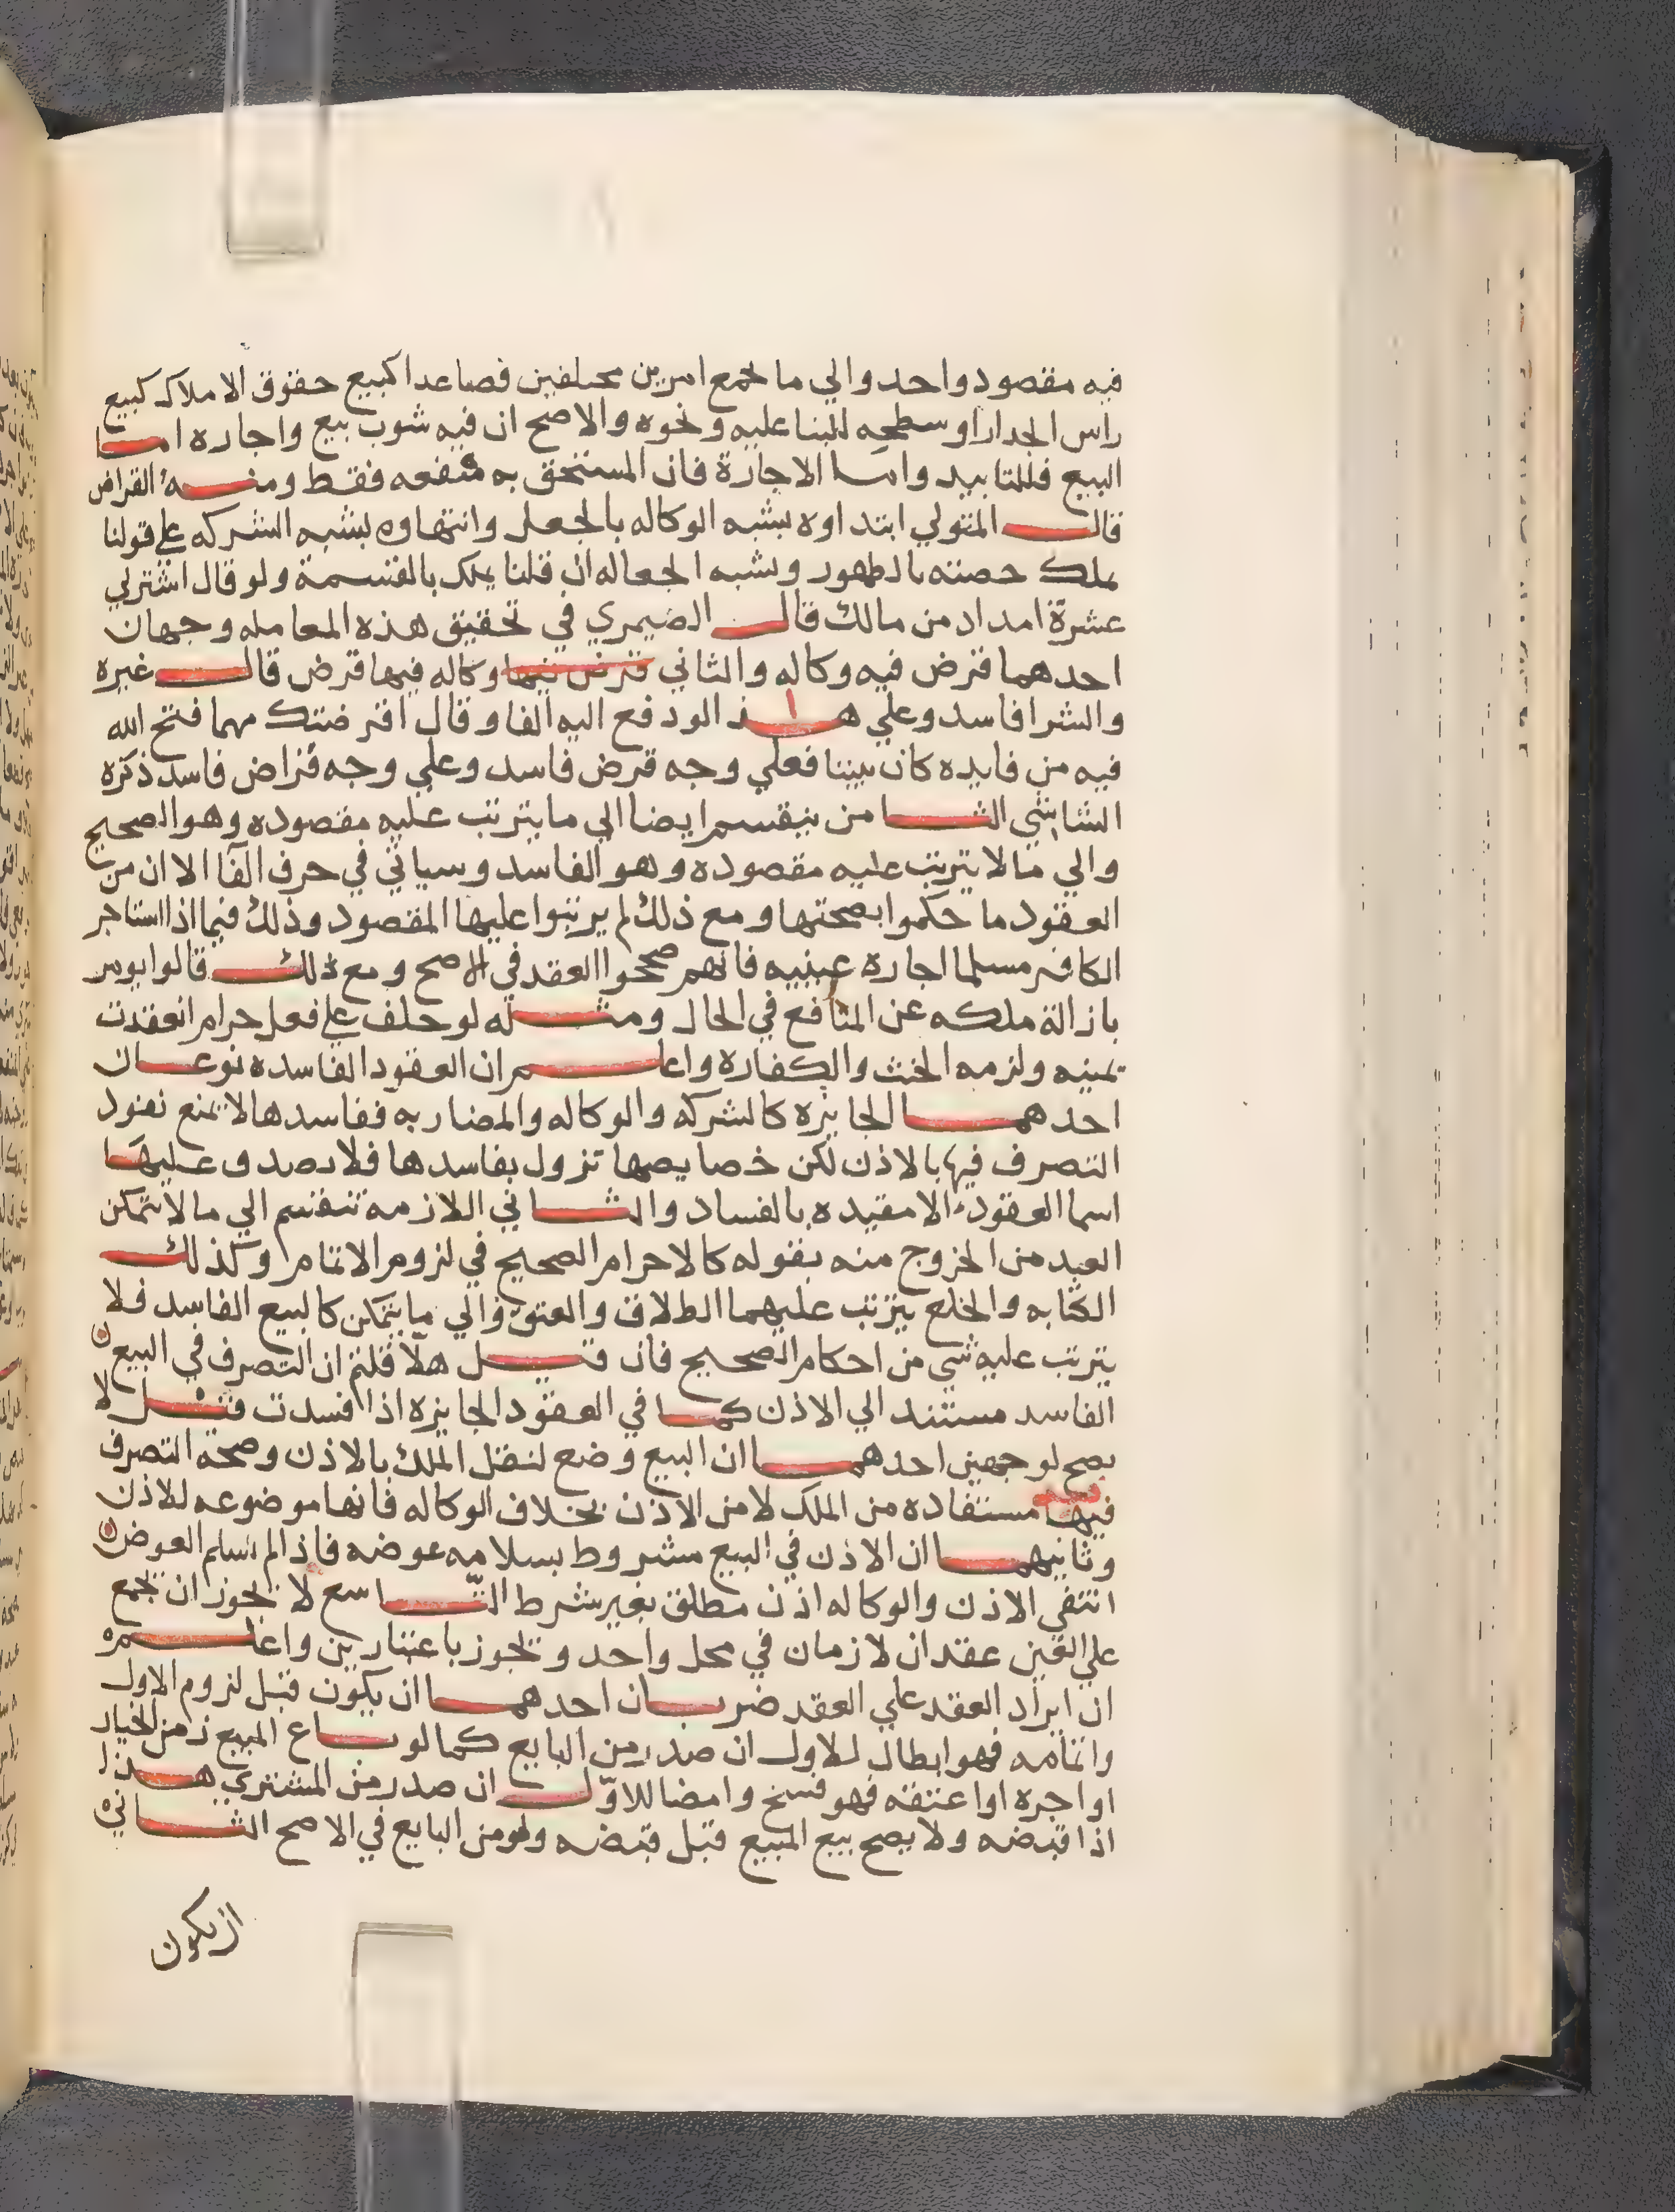 فيه مقصود واحد والي ما يجمع امرين مختلفين فصاعدا كبيع حقوق الاملاك كبيع
راس الجدار او سطحه للبنا عليه ونحوه والاصح ان فيه شوب بيع واجاره اما
البيع فللتابيد واما الاجارة فان المستحق به منفعه فقط ومنه القراض
قال المتولي ابتداوه يشبه الوكاله بالجعل وانتهاوه يشبه الشركه علي قولنا
يملك حصته بالظهور ويشبه الجعاله ان قلنا يملك بالقسمة ولو قال اشتر لي
عشرة امداد من مالك قال الضيمري في تحقيق هذه المعامله وجهان
احدهما قرض فيه وكاله والثاني قرض فيها وكاله فيها قرض قال غيره
والشرا فاسد وعلي هذا لو دفع اليه الفا وقال اقرضتك مهما فتح الله
فيه من فايده كان بيننا فعلي وجه قرض فاسد وعلي وجه قراض فاسد ذكره
الشاشي الثامن ينقسم ايضا الي ما يترتب عليه مقصوده وهو الصحيح
والي ما لا يترتب عليه مقصوده وهو الفاسد وسياتي في حرف الفا الا ان من
العقود ما حكموا بصحتها ومع ذلك لم يرتبوا عليها المقصود وذلك فيما اذا استاجر
الكافر مسلما اجارة عينيه فانهم صححوا العقد في الاصح ومع ذلك قالوا يومر
بازالة ملكه عن المنافع في الحال ومثله لو حلف علي فعل حرام انعقدت
يمينه ولزمه الحنث والكفاره واعلم ان العقود الفاسده نوعان
احدهما الجايزه كالشركه والوكاله والمضاربه ففاسدها لا يمنع نفود
التصرف فيها بالاذن لكن خصايصها تزول بفاسدها فلا يصدق عليها
اسما العقود الا مقيده بالفساد والثاني اللازمه تنقسم الي ما لا يتمكن
العبد من الخروج منه بقوله كالاحرام الصحيح في لزوم الاتمام وكذلك
الكتابه والخلع يترتب عليهما الطلاق والعتق والي ما يتمكن كالبيع الفاسد فلا
يترتب عليه شي من احكام الصحيح فان قيل هلا قلتم ان التصرف في البيع
الفاسد مستند الي الاذن كما في العقود الجايزه اذا فسدت قيل لا
يصح لوجهين احدهما ان البيع وضع لنقل الملك بالاذن وصحة التصرف
فيها مستفاده من الملك لا من الاذن بخلاف الوكاله فانها موضوعه للاذن
وثانيهما ان الاذن في البيع مشروط بسلامه عوضه فاذا لم يسلم العوض
انتفي الاذن والوكاله اذن مطلق بغير شرط التاسع لا يجوز ان يجمع
علي العين عقدان لازمان في محل واحد ويجوز باعتبارين واعلم
ان ايراد العقد علي العقد ضربان احدهما ان يكون قبل لزوم الاول
واتمامه فهو ابطال للاول ان صدر من البايع كما لو باع المبيع زمن الخيار
او اجره او اعتقه فهو فسخ وامضا للاول ان صدر من المشتري هذا
اذا قبضه ولا يصح بيع المبيع قبل قبضه ولو من البايع في الاصح الثاني
ان يكون